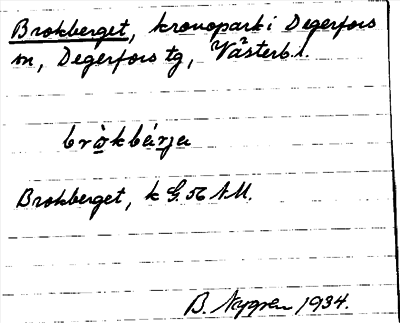 Brokberget, kronopark i Degerfors
sn, Degerfors tg, Västerb. l.
bròkbárja
Brokberget, k G. 56 N.V.
B. Nygren 1934.